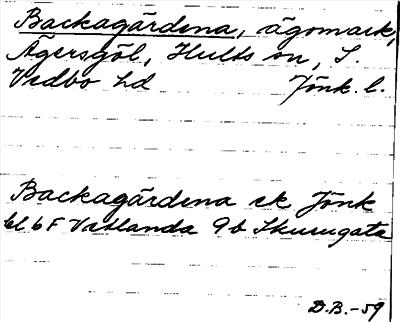 Backagärdena, ägomark,
Ägersgöl, Hults sn, S.
Vedbo hd Jönk. l.
Backagärdena ek Jönk
bl 6 F Vetlanda 9b Skurugata
D.B.-59